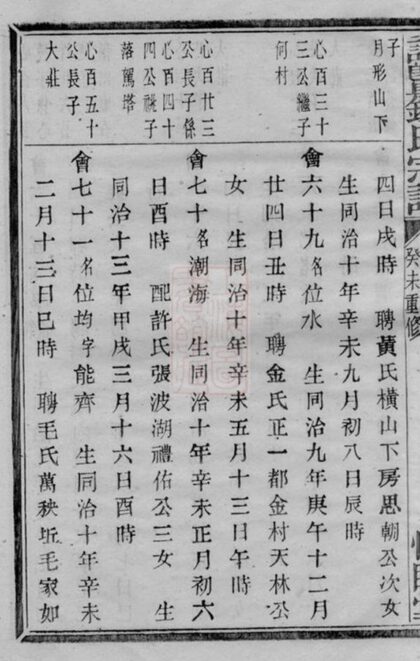 癸未重修
子
月形山下
四日戌時　聘黃氏橫山下房思朝公次女
生同治十年辛未九月初八日辰時
心百三十
三公繼子
何村
會六十九名位水　生同治九年庚午十二月
廿四日丑時　聘金氏正一都金村天林公
女　生同治十年辛未五月十三日午時
心百廿三
公長子係
心百四十
四公祧子
落駕塔
會七十名潮海　生同治十年辛未正月初六
日酉時　配許氏張波湖禮佑公三女　生
同治十三年甲戌三月十六日酉時
心百五十
公長子
大莊
會七十一名位均字能齊　生同治十年辛未
二月十三日巳時　聘毛氏萬秧坵毛家如